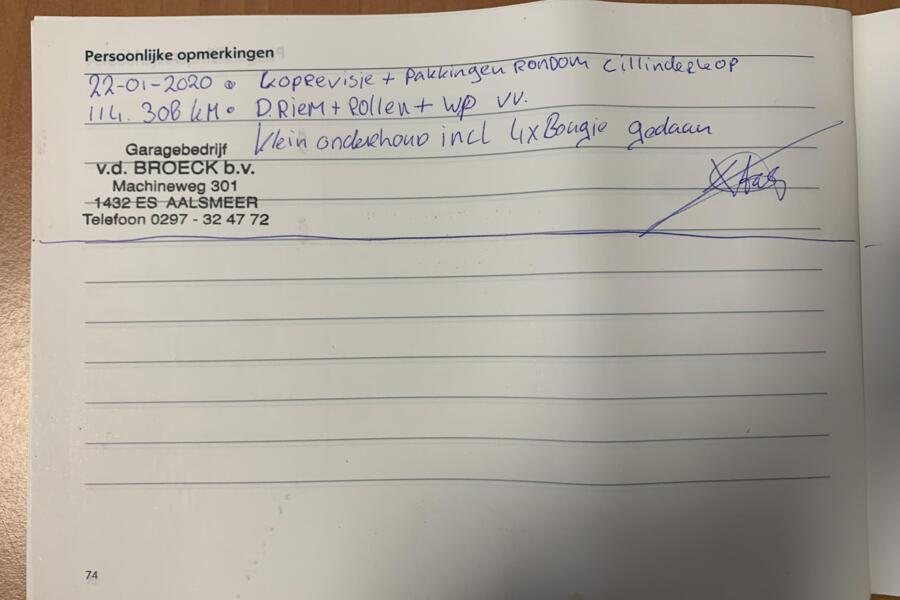 Persoonlijke opmerkingen
22-01-2020 • Koprevisie + pakkingen rondom cillinderkop
114.308 km • D.Riem + Rollen + WP vv.
Klein onderhoud incl 4x Bougie gedaan
Garagebedrijf
v.d. BROECK b.v.
Machineweg 301
1432 ES AALSMEER
Telefoon 0297 - 32 47 72
74